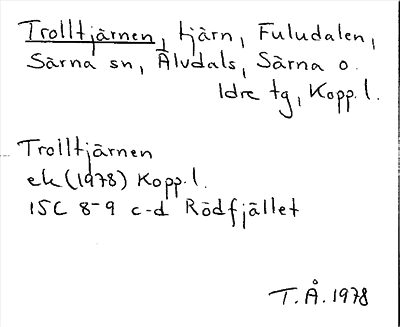 Trolltjärnen, tjärn, Fuludalen,
Särna sn, Älvdals, Särna o.
Idre tg, Kopp.l.
Trolltjärnen
ek (1978) Kopp.l.
15C 8-9 c-d Rödfjället
T.Å. 1978